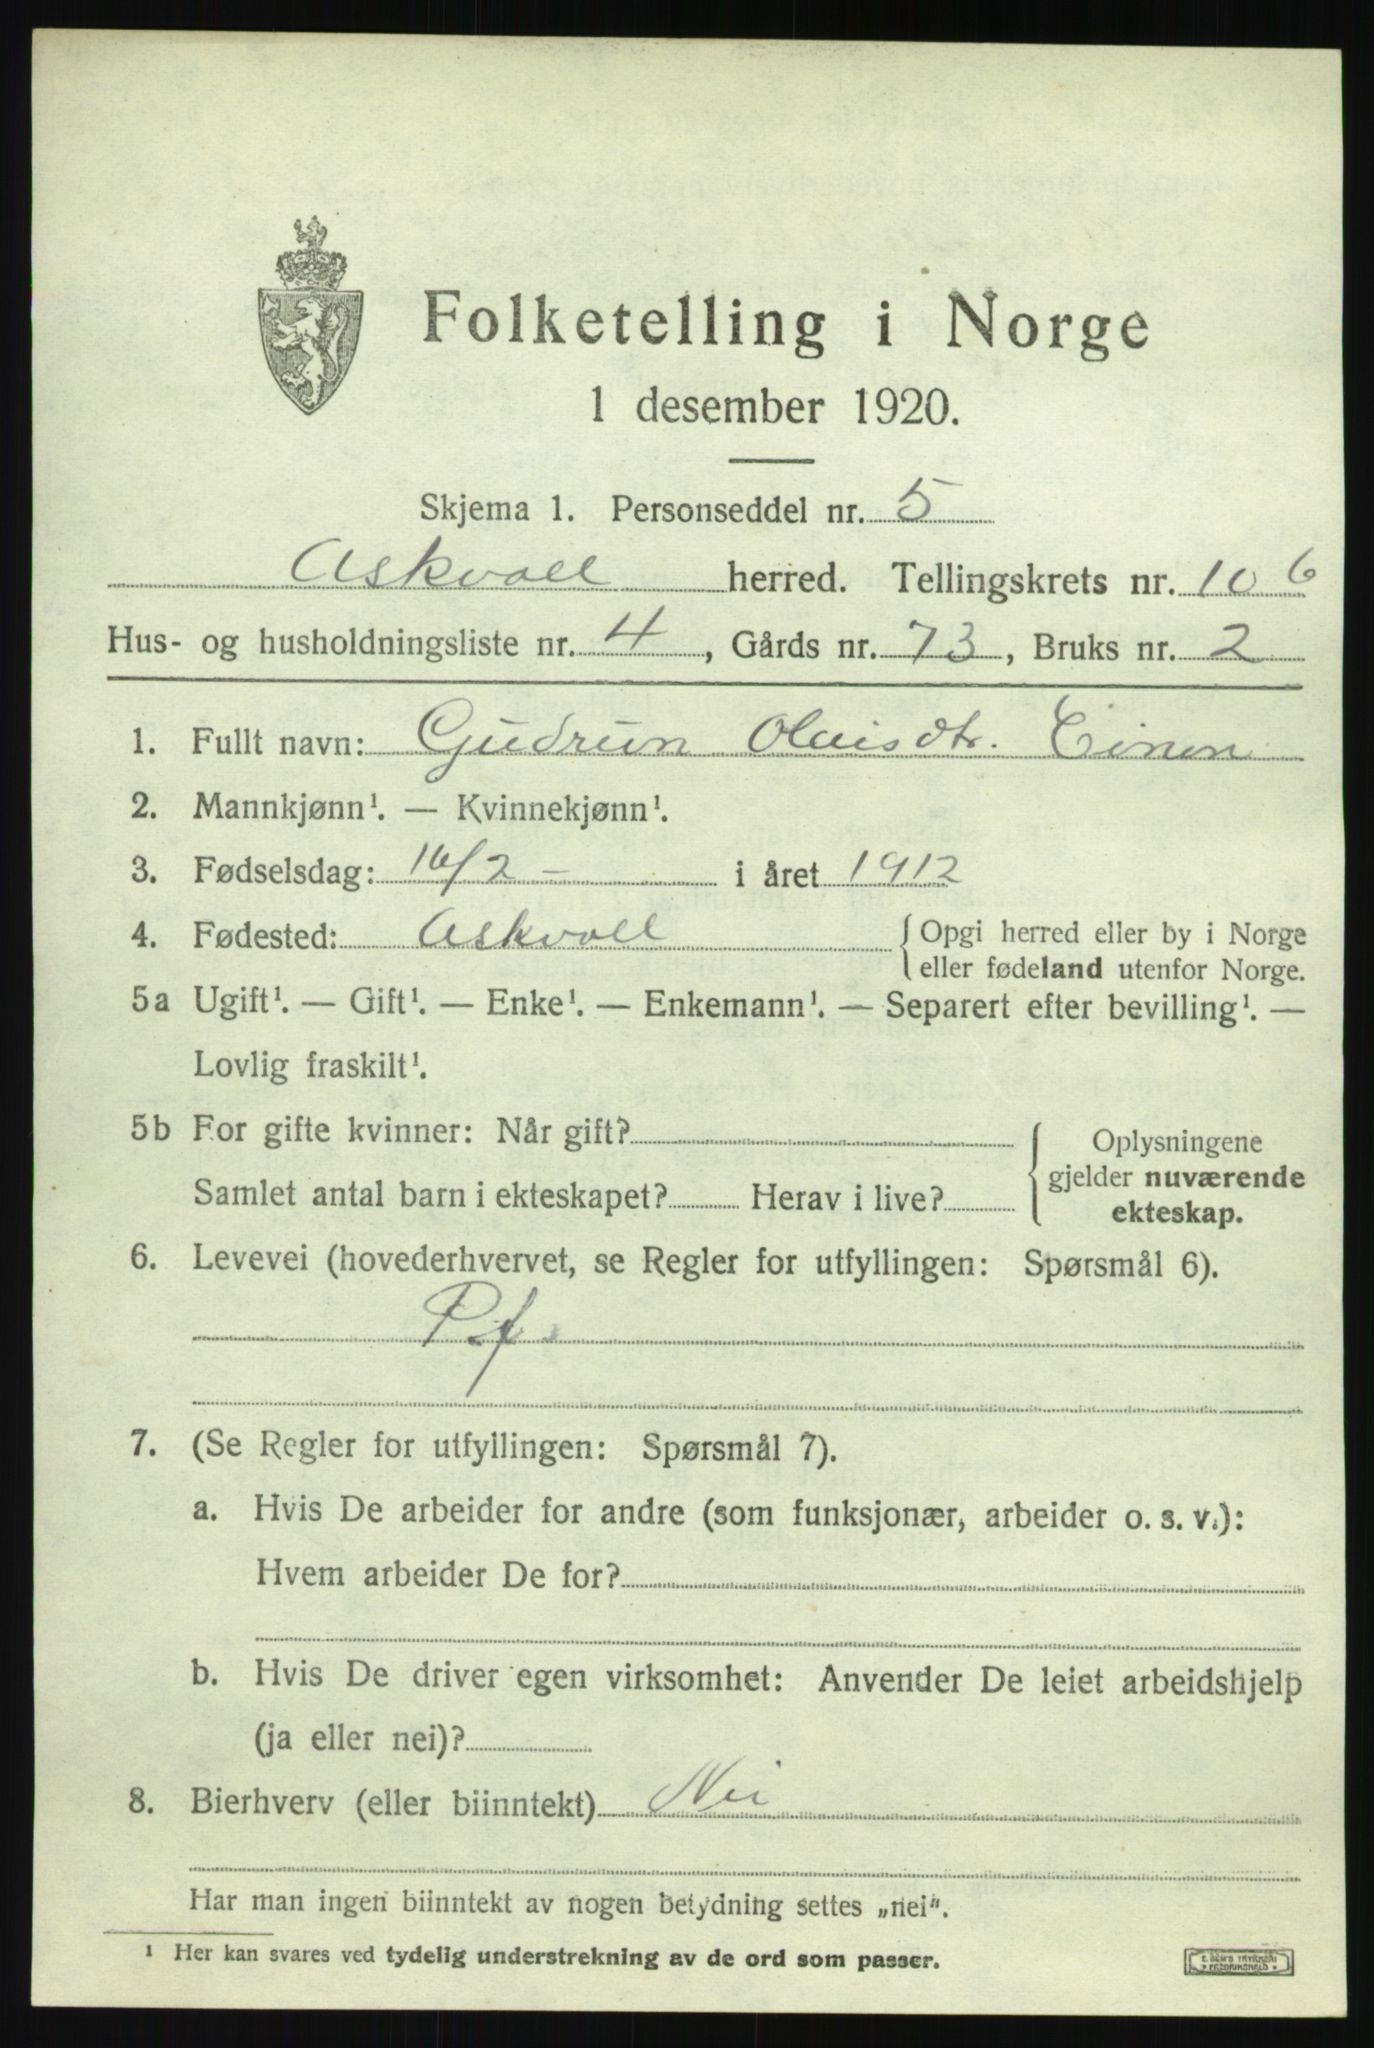 Folketelling i Norge
1 desember 1920.
Skjema 1. Personseddel nr. 5
Askvoll herred. Tellingskrets nr. 10 6
Hus- og husholdningsliste nr. 4, Gårds nr. 73, Bruks nr. 2
1. Fullt navn: Gudrun Olaisdtr.
2. Mannkjønn¹. — Kvinnekjønn¹.
3. Fødselsdag: 16/2 - i året 1912
4. Fødested: Askvoll { Opgi herred eller by i Norge
eller fødeland utenfor Norge.
5a Ugift¹. — Gift¹. — Enke¹. — Enkemann¹. — Separert efter bevilling¹. —
Lovlig fraskilt¹.
5b For gifte kvinner: Når gift? { Oplysningene
gjelder nuværende
Samlet antal barn i ekteskapet? Herav i live?
ekteskap.
6. Levevei (hovederhvervet, se Regler for utfyllingen: Spørsmål 6).
P.f.
7. (Se Regler for utfyllingen: Spørsmål 7).
a. Hvis De arbeider for andre (som funksjonær, arbeider o. s. v.):
Hvem arbeider De for?
b. Hvis De driver egen virksomhet: Anvender De leiet arbeidshjelp
(ja eller nei)?
8. Bierhverv (eller biinntekt) Nei
Har man ingen biinntekt av nogen betydning settes „nei".
¹ Her kan svares ved tydelig understrekning av de ord som passer.